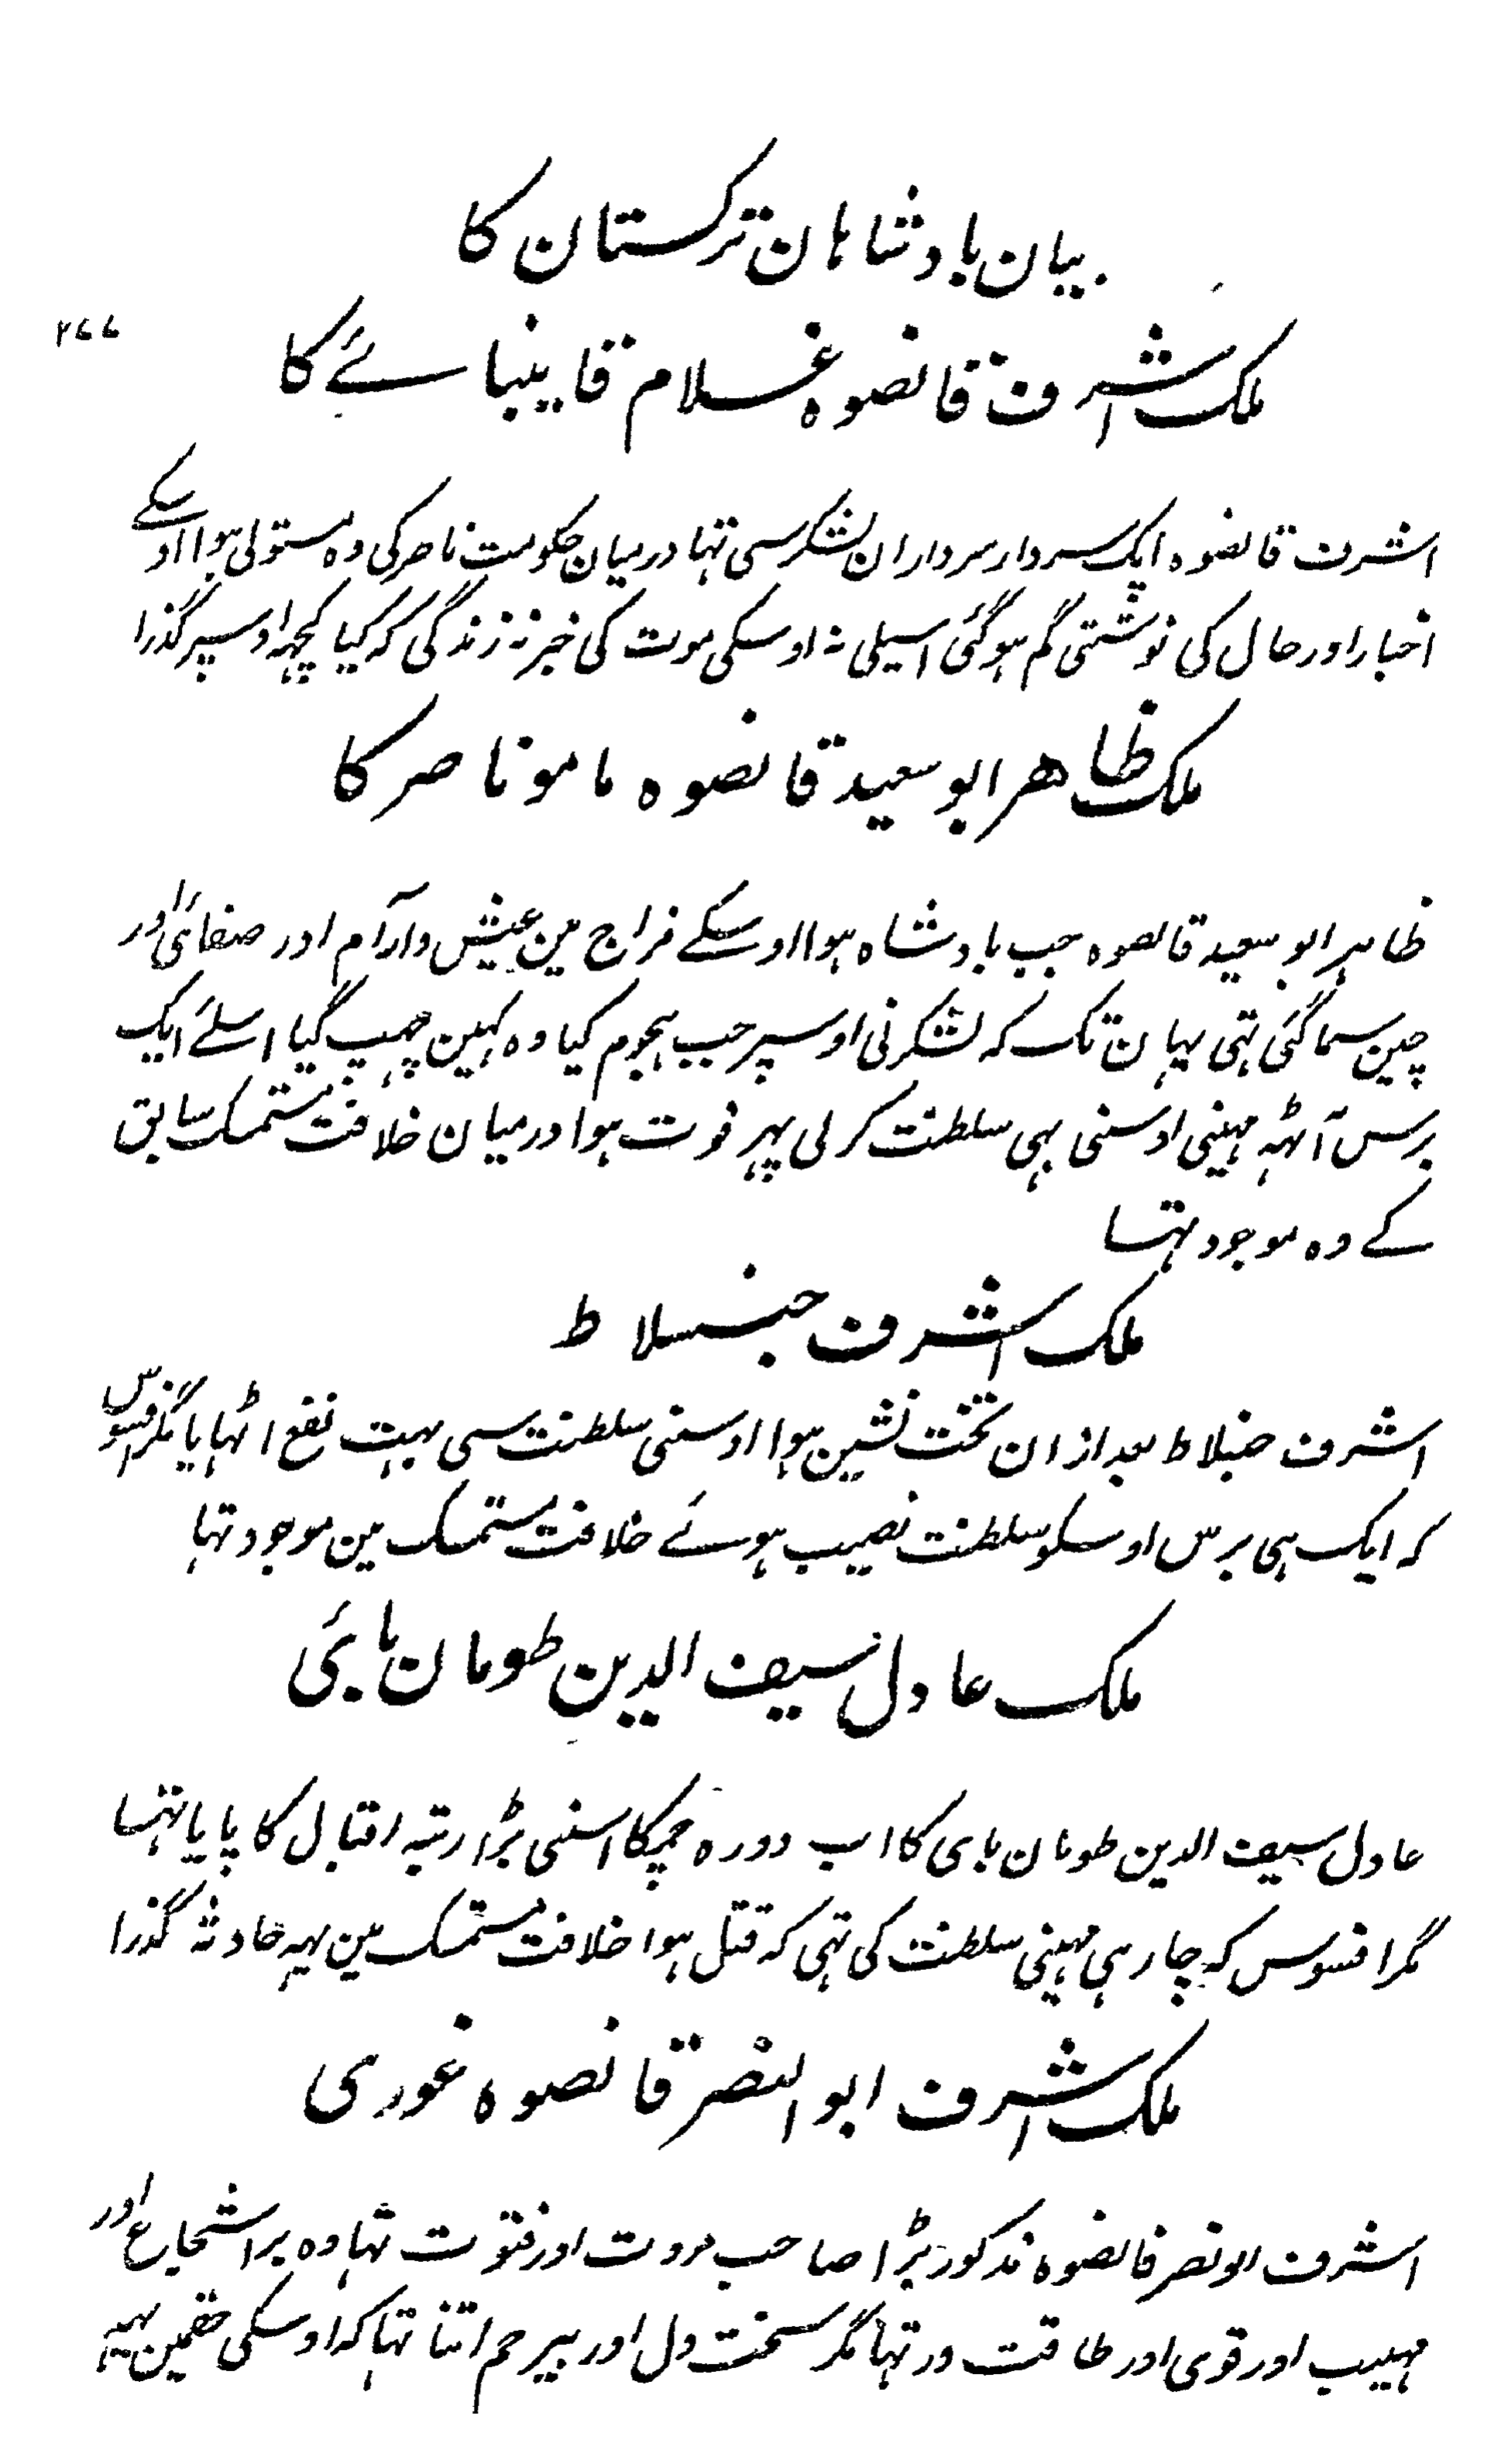 بیان بادشاہان ترکستان کا
۲۷۷
ملک اشرف قانصوہ غلام قایتبائے کا
اشرف قانصوہ ایک سردار سرداران لشکر سی تہا درمیان حکومت ناصر کی وہ مستولی ہوا اوسکے
اخبار اور حال کی نوشتی گم ہو گئی اسیلی نہ اوسکی موت کی خبر نہ زندگی کہ کیا کچہہ اوسپر گذرا
ملک ظاھر ابو سعید قانصوہ مامو ناصر کا
ظاہر ابو سعید قانصوہ جب بادشاہ ہوا اوسکے مزاج مین عیش وآرام اور صفائی اور
چین سما گئی تہی یہان تک کہ لشکر نی اوسپر جب ہجوم کیا وہ کہین چہپ گیا اسلئے ایک
برس آٹہہ مہینی اوسنی بہی سلطنت کر لی پہر فوت ہوا درمیان خلافت مستمسک سابق
کے وہ موجود تہا
ملک اشرف جنبلاط
اشرف جنبلاط بعد ازان تخت نشین ہوا اوسنی سلطنت سی بہت نفع اٹہایا مگر افسوس
کہ ایک ہی برس اوسکو سلطنت نصیب ہوئے خلافت مستمسک مین موجود تہا
ملک عادل سیف الدین طومان بائی
عادل سیف الدین طومان بای کا اب دورہ چمکا اسنی بڑا رتبہ اقبال کا پایا تہا
مگر افسوس کہ چار ہی مہینی سلطنت کی تہی کہ قتل ہوا خلافت مستمسک مین یہہ حادثہ گذرا
ملک اشرف ابو النصر قانصوہ غوری
اشرف ابو نصر قانصوہ مذکور بڑا صاحب مروت اور فتوت تہا وہ بڑا شجاع اور
مہیب اور قوی اور طاقت ور تہا مگر سخت دل اور بیرحم اتنا تہا کہ اوسکی حقمین یہہ